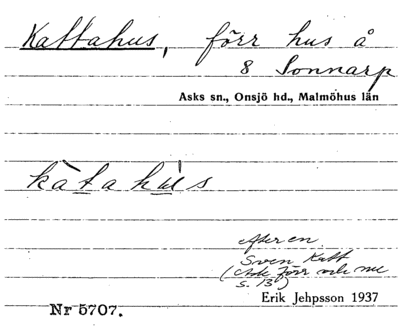 Kattahus, förr hus å
8 Sonnarp
Asks sn., Onsjö hd., Malmöhus län
kàtahús
efter en
Sven Katt
(Ask förr och nu
s. 13)
Erik Jehpsson 1937
Nr 5707.